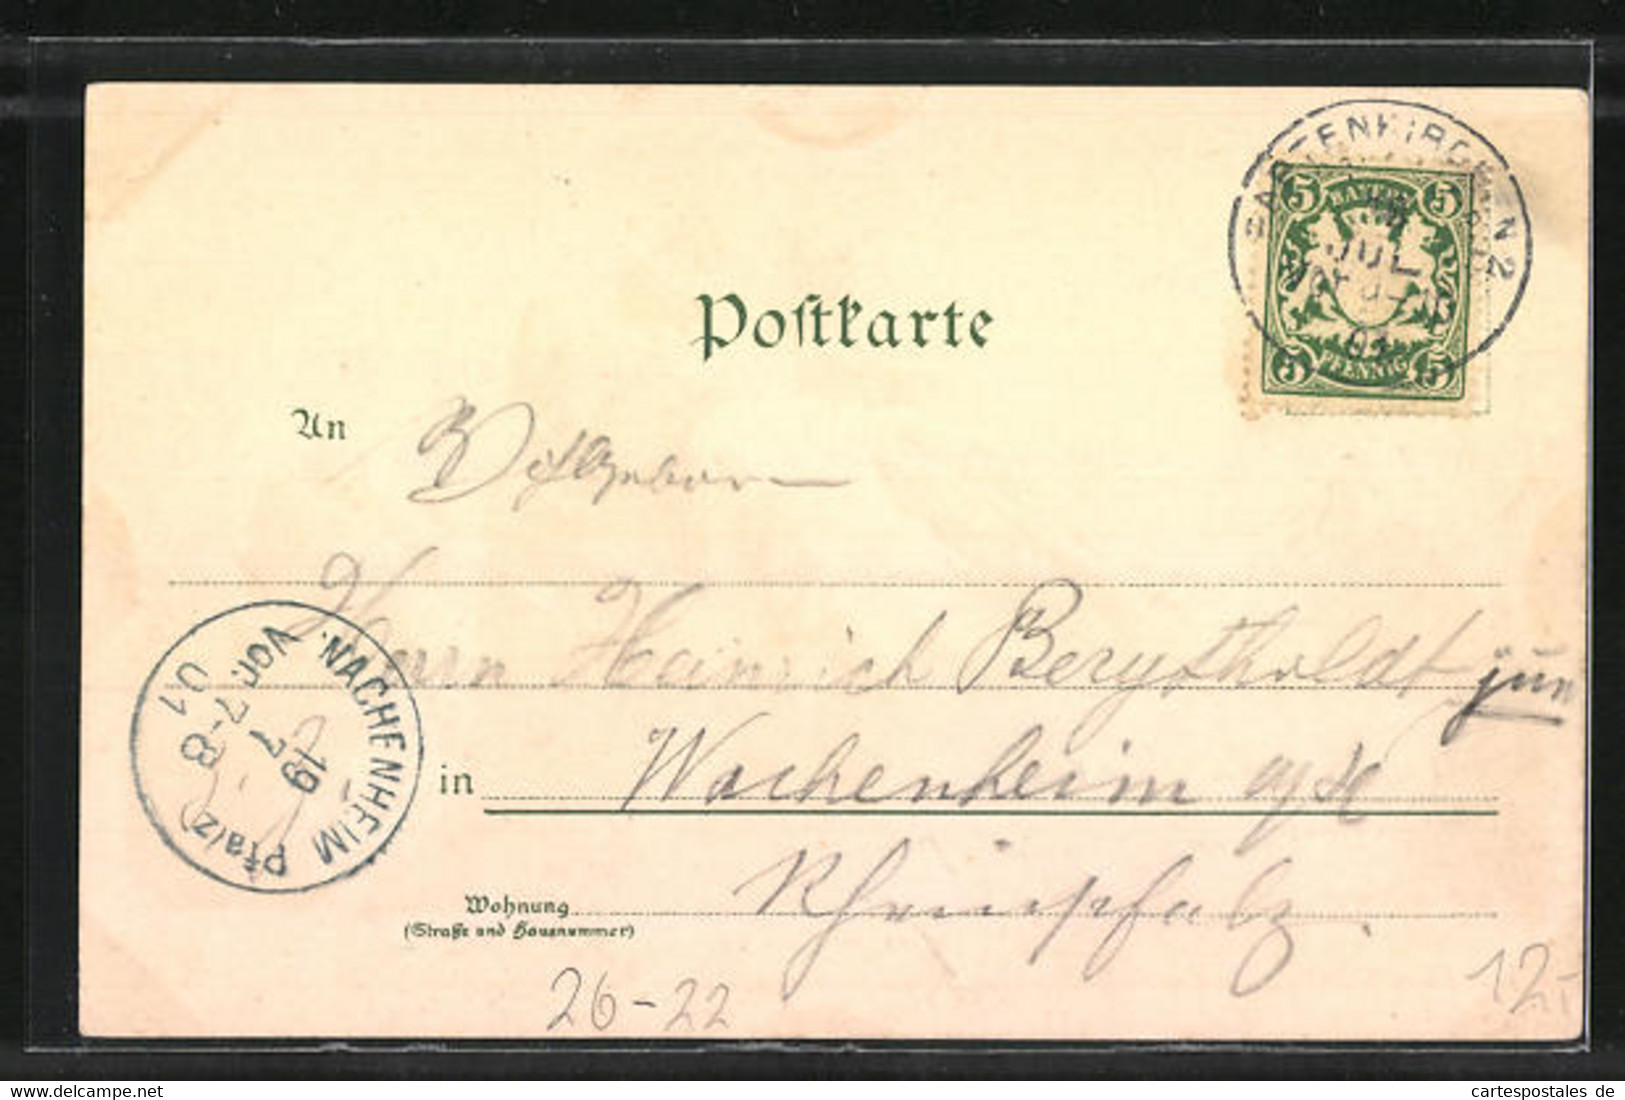 Postkarte
BAYERN
5 5
JUL
01
5 PFENNIG 5
An
Herrn Heinrich Bergtholdt jun
in Wachenheim a/H
Rheinpfalz.
WACHENHEIM (Pfalz)
19 7
Vor. 7-8
01
Wohnung
(Straße und Hausnummer)
26-22
12,-
www.delcampe.net
cartespostales de